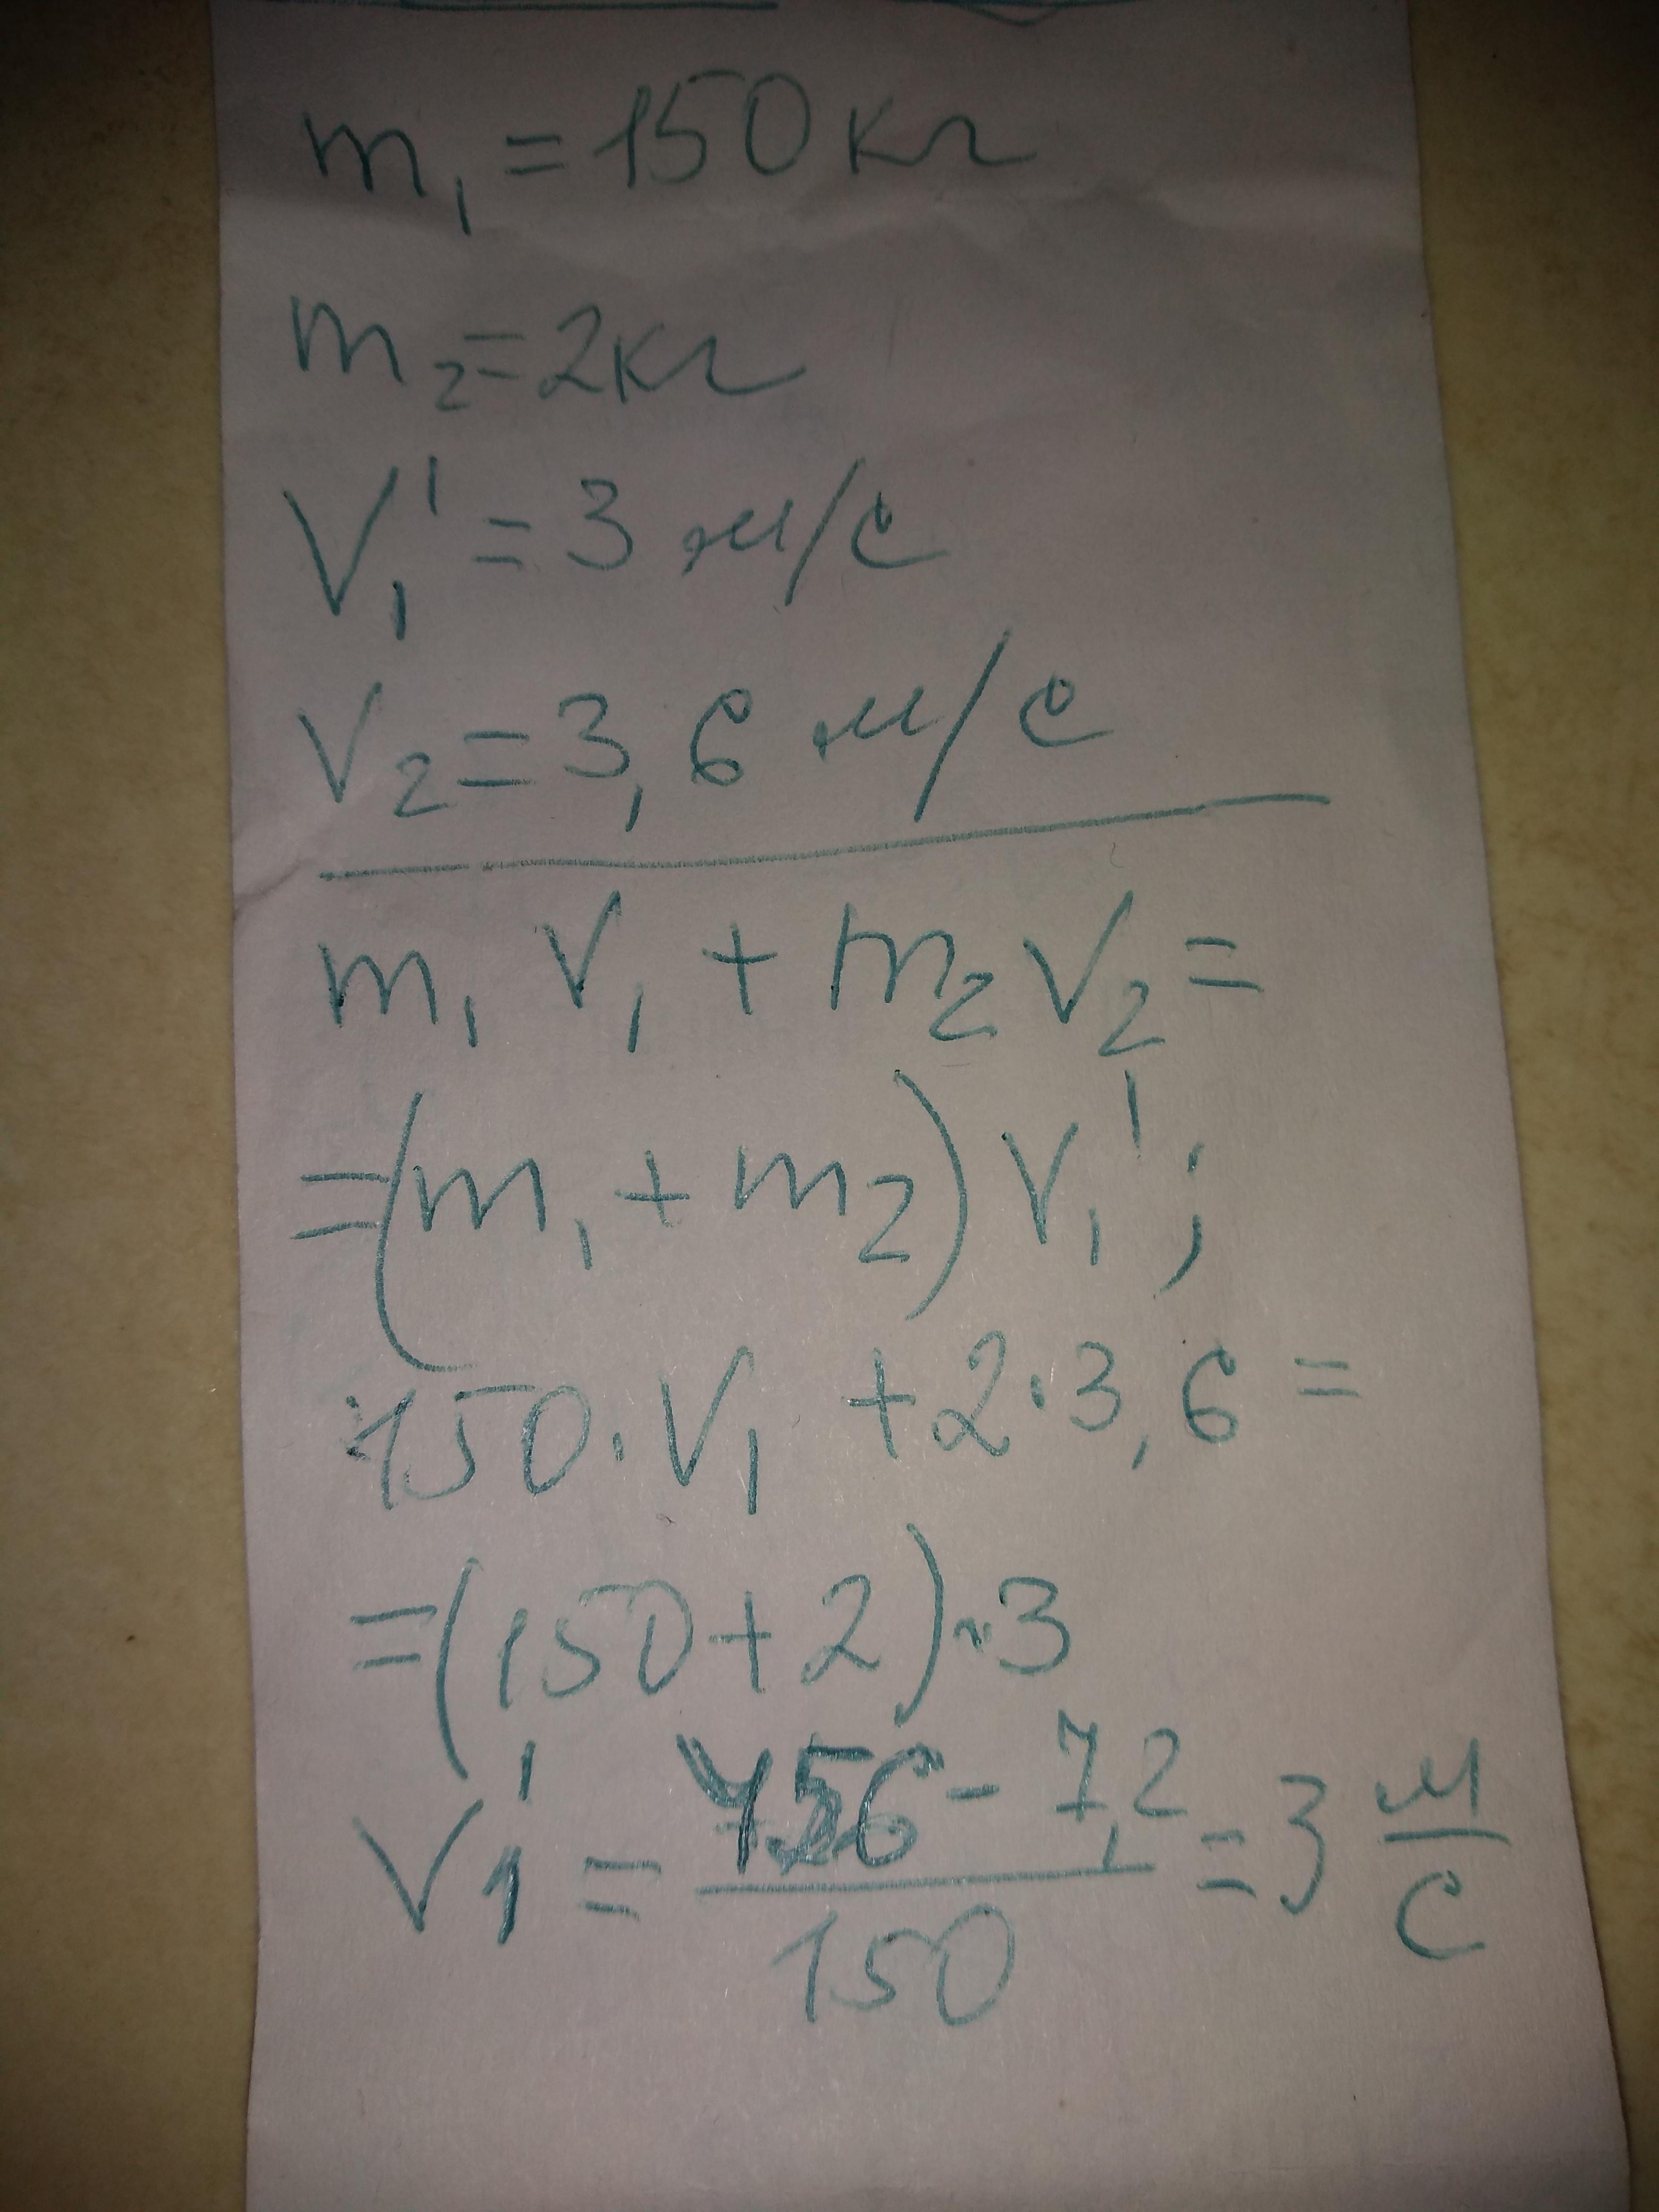 m₁ = 150 кг
m₂ = 2 кг
V₁' = 3 м/с
V₂ = 3,6 м/с
m₁ V₁ + m₂ V₂ =
= (m₁ + m₂) V₁' ;
150 · V₁ + 2 · 3,6 =
= (150 + 2) · 3
V₁' = (456 - 7,2) / 150 = 3 м/с